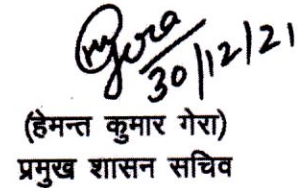 30/12/21
(हेमन्त कुमार गेरा)
प्रमुख शासन सचिव